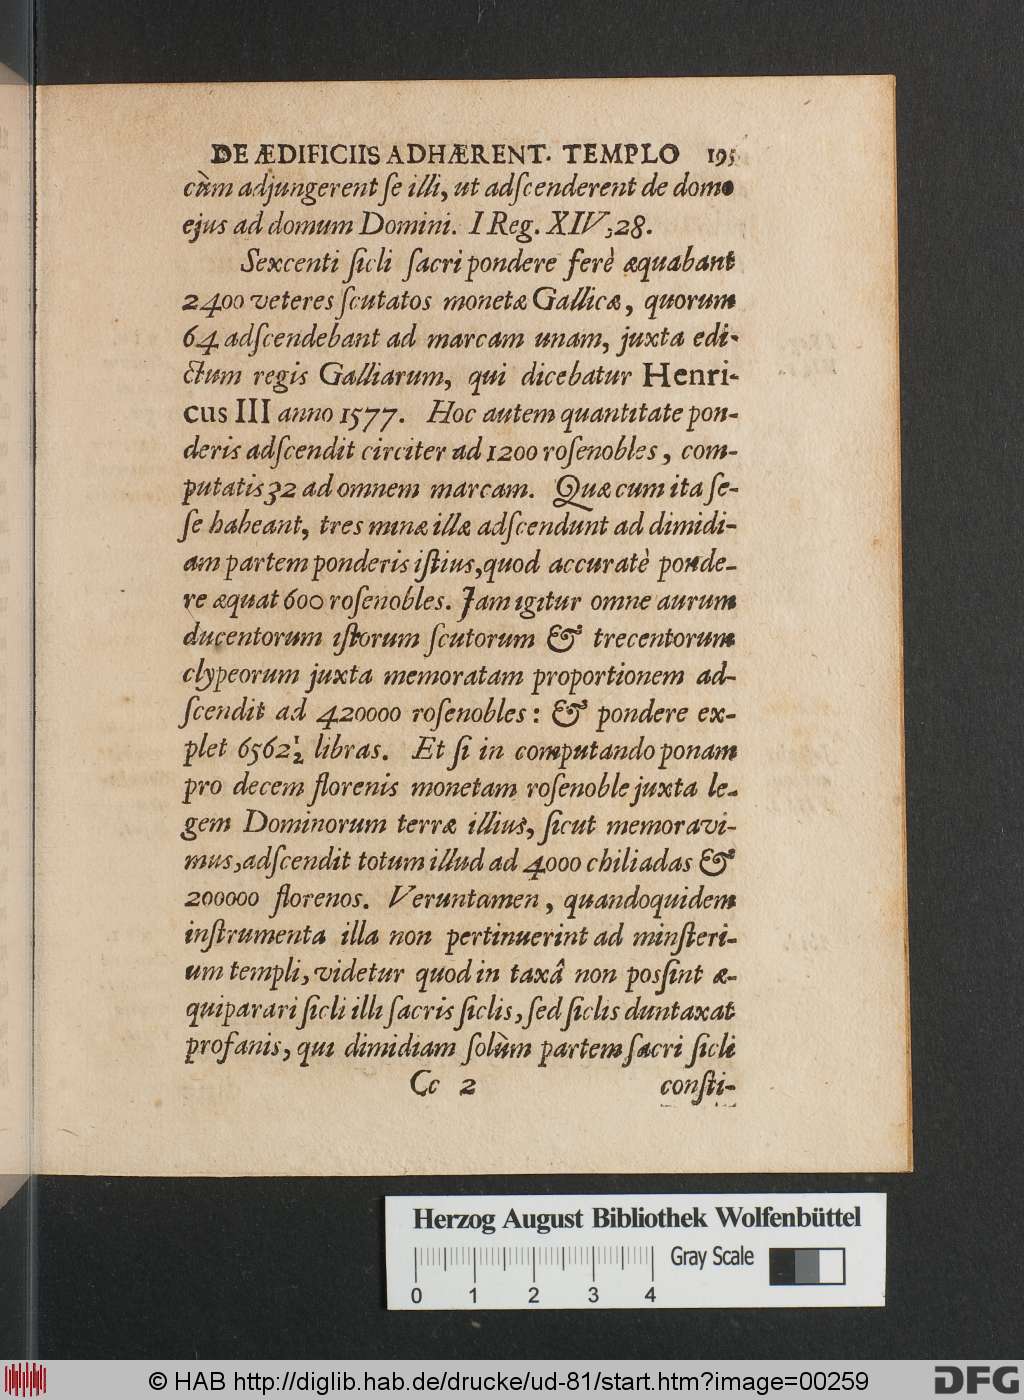 DE ÆDIFICIIS ADHÆRENT. TEMPLO 195
cùm adjungerent ſe illi, ut adſcenderent de domo
ejus ad domum Domini. I Reg. XIV;28.
Sexcenti ſicli ſacri pondere ferè æquabant
2400 veteres ſcutatos monetæ Gallicæ, quorum
64 adſcendebant ad marcam unam, juxta edi-
ctum regis Galliarum, qui dicebatur Henri-
cus III anno 1577. Hoc autem quantitate pon-
deris adſcendit circiter ad 1200 roſenobles, com-
putatis 32 ad omnem marcam. Quæ cum ita ſe-
ſe habeant, tres minæ illæ adſcendunt ad dimidi-
am partem ponderis iſtius, quod accuratè ponde-
re æquat 600 roſenobles. Jam igitur omne aurum
ducentorum iſtorum ſcutorum & trecentorum
clypeorum juxta memoratam proportionem ad-
ſcendit ad 420000 roſenobles: & pondere ex-
plet 6562½ libras. Et ſi in computando ponam
pro decem florenis monetam roſenoble juxta le-
gem Dominorum terræ illius, ſicut memoravi-
mus, adſcendit totum illud ad 4000 chiliadas &
200000 florenos. Veruntamen, quandoquidem
inſtrumenta illa non pertinuerint ad minſteri-
um templi, videtur quod in taxâ non poſſint æ-
quiparari ſicli illi ſacris ſiclis, ſed ſiclis duntaxat
profanis, qui dimidiam ſolùm partem ſacri ſicli
Cc 2 conſti-
Herzog August Bibliothek Wolfenbüttel
Gray Scale
0 1 2 3 4
© HAB http://diglib.hab.de/drucke/ud-81/start.htm?image=00259
DFG